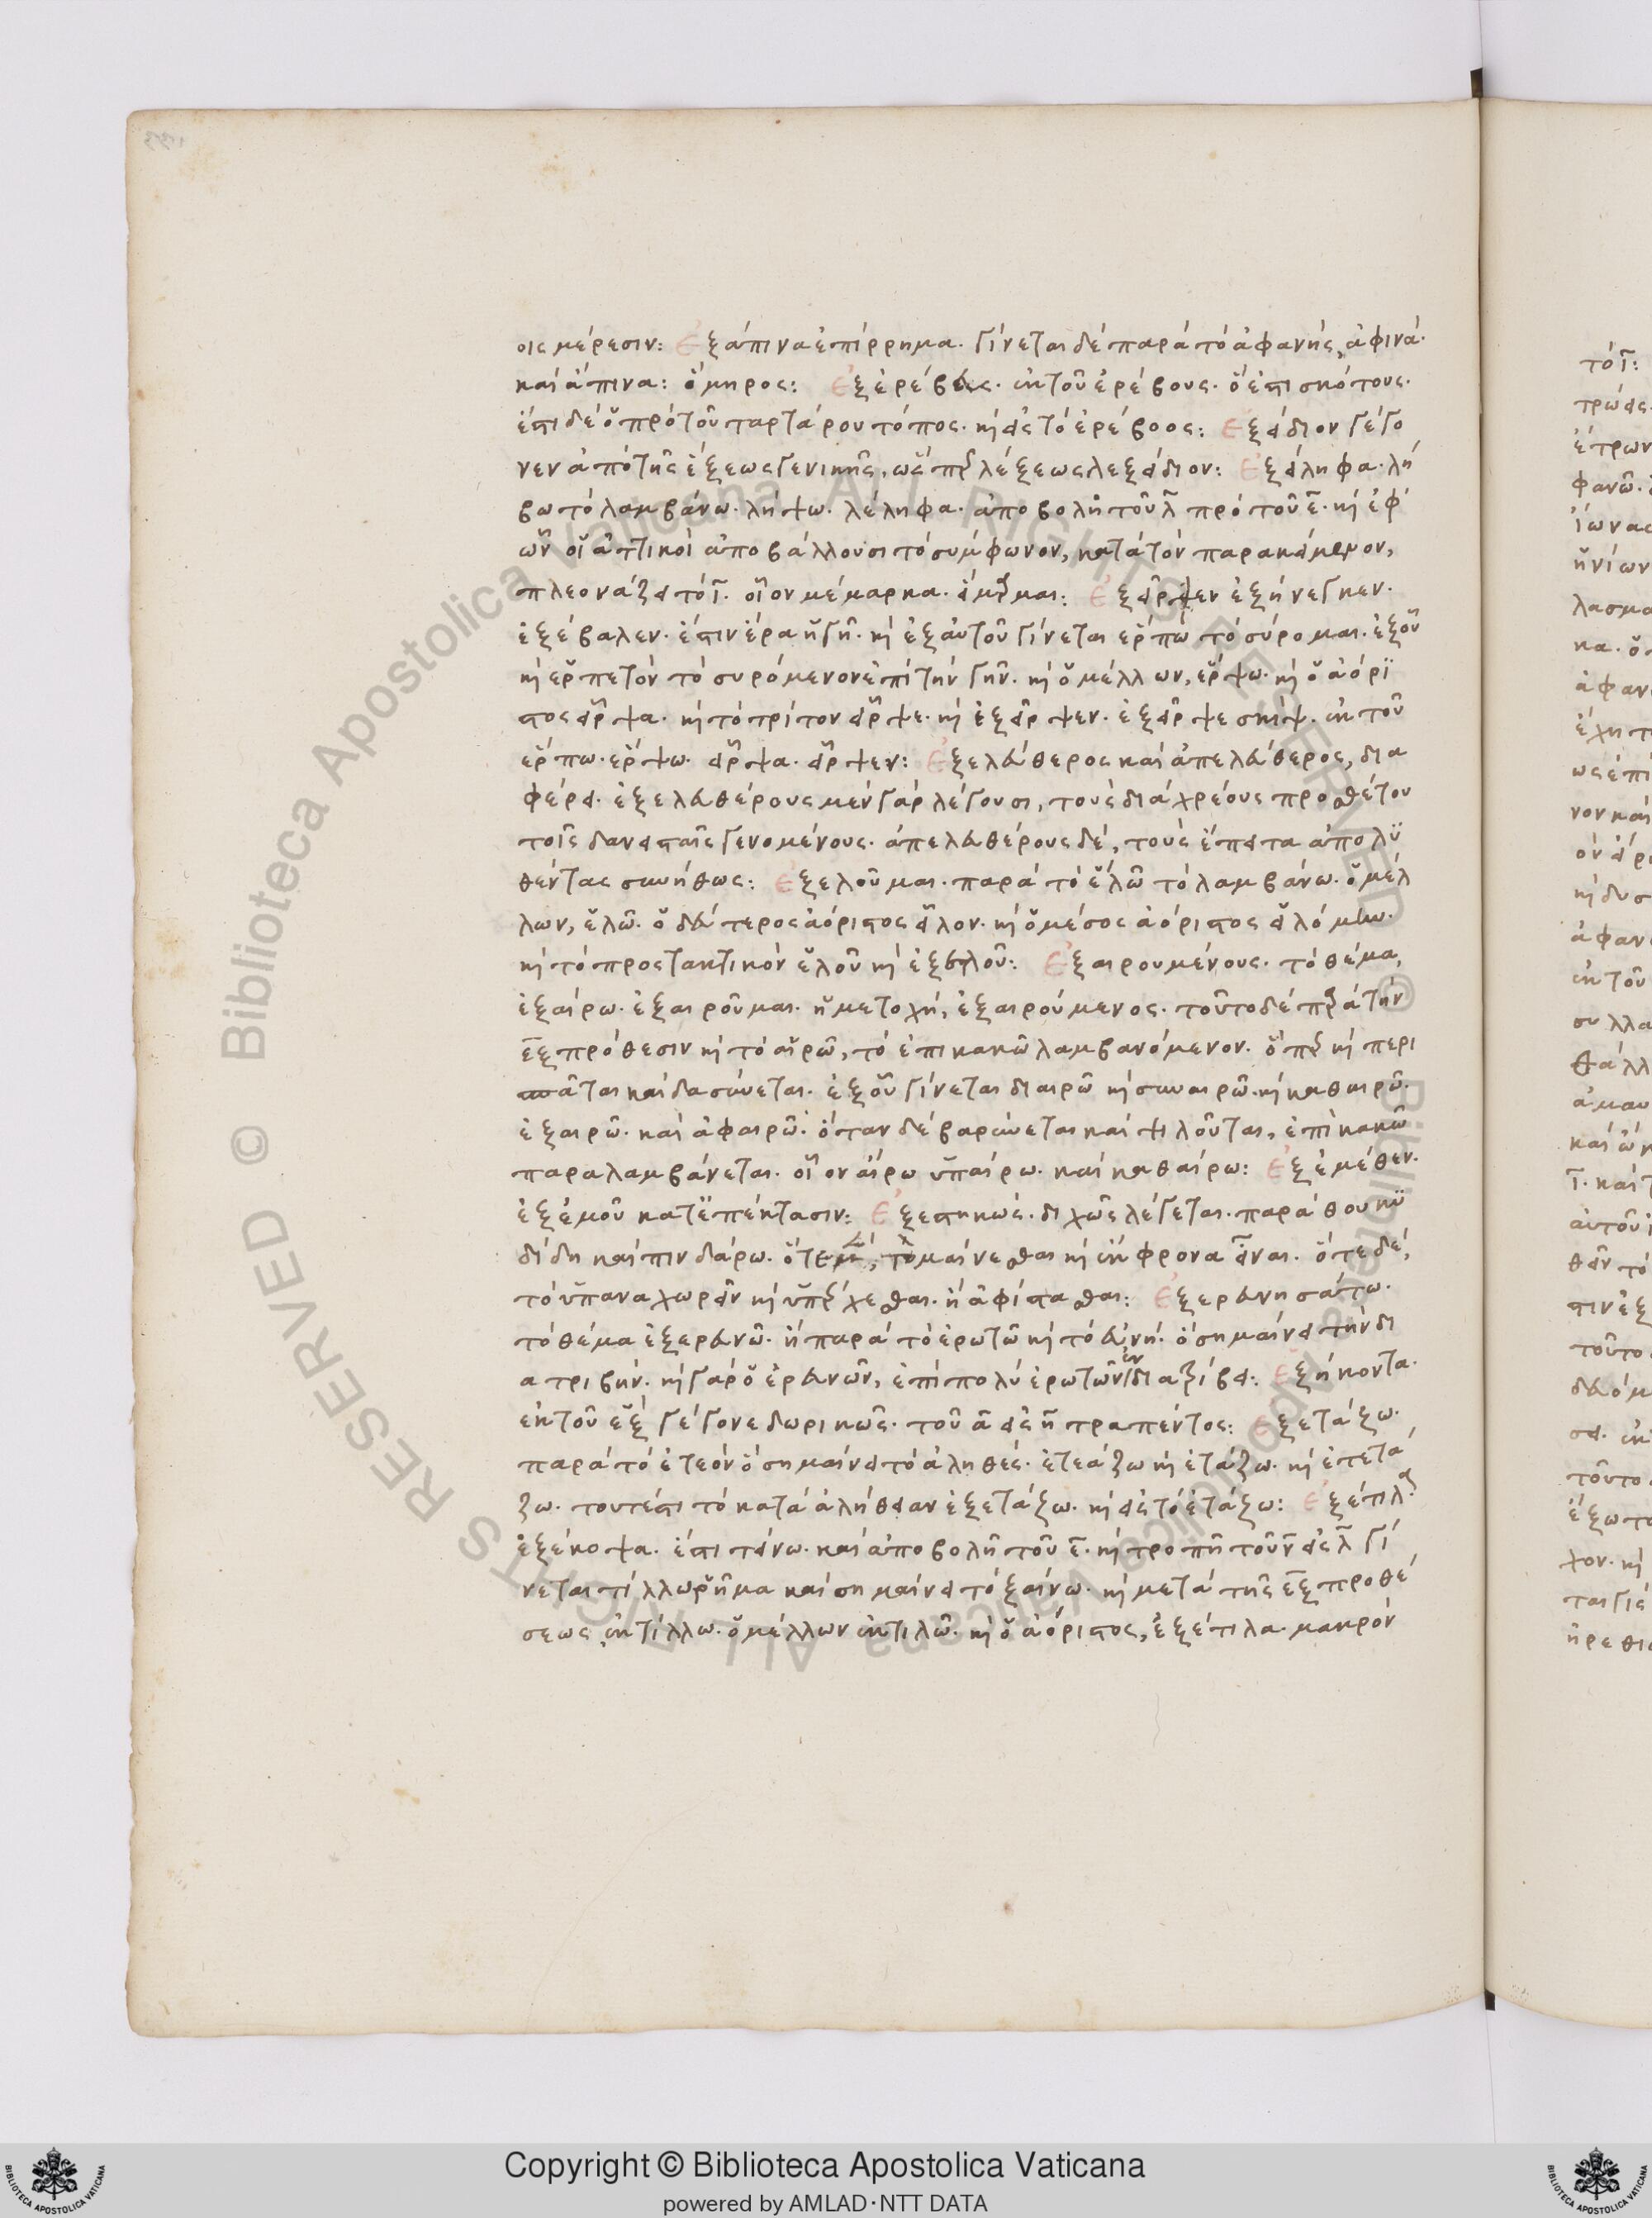 οις μέρεσιν: Ἐξάπινα ἐπίρρημα. γίνεται δὲ παρὰ τὸ ἀφανής, ἀφινά.
καὶ ἄπινα: ὅμηρος: Ἐξ ἐρέβευς. ἐκ τοῦ ἐρέβους. ὅ ἐστι σκότους.
ἔστι δὲ ὁ πρὸ τοῦ ταρτάρου τόπος. καὶ εἰς τὸ ἐρέβοος: Ἑξείδιον γέγο
νεν ἀπὸ τῆς ἕξεως γενικῆς, ὡς λέξεως λεξείδιον: Ἐξείληφα. λή
βω τὸ λαμβάνω. λήψω. λέληφα. ἀποβολῆ τοῦ λ̅ πρὸ τοῦ ε̅. καὶ ἐφ'
ὧν οἱ ἀττικοὶ ἀποβάλλουσι τὸ σύμφωνον, κατὰ τὸν παρακείμενον,
πλεονάζει τὸ ι̅. οἷον μέμαρκα. εἵμαρμαι: Ἐξεῖρψεν ἐξήνεγκεν.
ἐξέβαλεν. ἔστιν ἔρα ἡ γῆ. καὶ ἐξ αὐτοῦ γίνεται ἕρπω τὸ σύρομαι. ἐξ οὗ
καὶ ἑρπετὸν τὸ συρόμενον ἐπὶ τὴν γῆν. καὶ ὁ μέλλων, ἕρψω. καὶ ὁ ἀόρι
στος εἷρψα. καὶ τὸ τρίτον εἷρψε. καὶ ἐξεῖρψεν. ἐξεῖρψε. ἐκ τοῦ
ἕρπω. ἕρψω. εἷρψα. εἷρψεν: Ἐξελεύθερος καὶ ἀπελεύθερος, δια
φέρει. ἐξελευθέρους μὲν γὰρ λέγουσι, τοὺς διὰ χρέους προσθέτου
τοῖς δανεισταῖς γενομένους. ἀπελευθέρους δὲ, τοὺς ἔπειτα ἀπολυ
θέντας συνήθως: Ἐξελοῦμαι. παρὰ τὸ ἑλῶ τὸ λαμβάνω. ὁ μέλ
λων, ἑλῶ. ὁ δεύτερος ἀόριστος εἷλον. καὶ ὁ μέσος ἀόριστος εἱλόμην.
καὶ τὸ προστακτικὸν ἑλοῦ καὶ ἐξελοῦ: Ἐξαιρουμένους. τὸ θέμα,
ἐξαίρω. ἐξαιροῦμαι. ἡ μετοχὴ, ἐξαιρούμενος. τοῦτο δὲ παρὰ τὴν
ἐξ πρόθεσιν καὶ τὸ αἱρῶ, τὸ ἐπὶ κακῶ λαμβανόμενον. ὅπερ καὶ περι
σπᾶται καὶ δασύνεται. ἐξ οὗ γίνεται διαιρῶ καὶ συναιρῶ. καὶ καθαιρῶ.
ἐξαιρῶ. καὶ ἀφαιρῶ. ὅταν δὲ βαρύνεται καὶ ψιλοῦται, ἐπὶ κακῶ
παραλαμβάνεται. οἷον αἴρω ὑπαίρω. καὶ καθαίρω: Ἐξ ἐμέθεν.
ἐξ ἐμοῦ κατ' ἐπέκτασιν: Ἐξεστηκώς. διχῶς λέγεται. παρὰ θουκυ
δίδη καὶ πινδάρω. ὅτε μὲν, τὸ μαίνεσθαι καὶ ἔκφρονα εἶναι. ὅτε δὲ,
τὸ ὑπαναχωρεῖν καὶ ὑπέρχεσθαι. ἢ ἀφίστασθαι: Ἐξερευνησάτω.
τὸ θέμα ἐξερευνῶ. ἢ παρὰ τὸ ἐρωτῶ καὶ τὸ εὐνή. ὃ σημαίνει τὴν δι
ατριβήν. καὶ γὰρ ὁ ἐρευνῶν, ἐπὶ πολὺ ἐρωτῶν ἐνδιατρίβει: Ἑξήκοντα.
ἐκ τοῦ ἓξ γέγονε δωρικῶς. τοῦ α̅ εἰς η̅ τραπέντος: Ἐξετάζω.
παρὰ τὸ ἐτεὸν ὃ σημαίνει τὸ ἀληθές. ἐτεάζω καὶ ἐτάζω. καὶ ἐπετά
ζω. τουτέστι τὸ κατὰ ἀλήθειαν ἐξετάζω. καὶ εἰς τὸ ἐτάζω: Ἐξέτιλα.
ἐξέκοψα. ἔστι τείνω. καὶ ἀποβολῆ τοῦ ε̅. καὶ τροπῆ τοῦ ν̅ εἰς λ̅ γί
νεται τίλλω ῥῆμα καὶ σημαίνει τὸ ξαίνω. καὶ μετὰ τῆς ἐξ προθέ
σεως ἐκτίλλω. ὁ μέλλων ἐκτιλῶ. καὶ ὁ ἀόριστος, ἐξέτιλα. μακρὸν
Copyright © Biblioteca Apostolica Vaticana
powered by AMLAD・NTT DATA